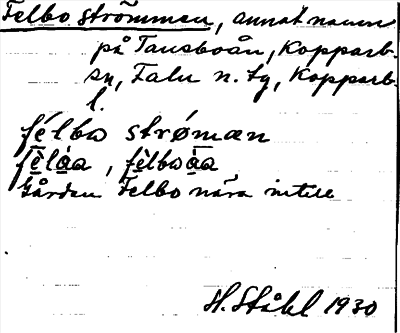 Felbo strömmen, annat namn
på Tansboån, Kopparb.
sn, Falu n. tg, Kopparb.
l.
félbo strømæn
fèlåa, fèlboåa
Gården Felbo nära intill
H. Ståhl 1930